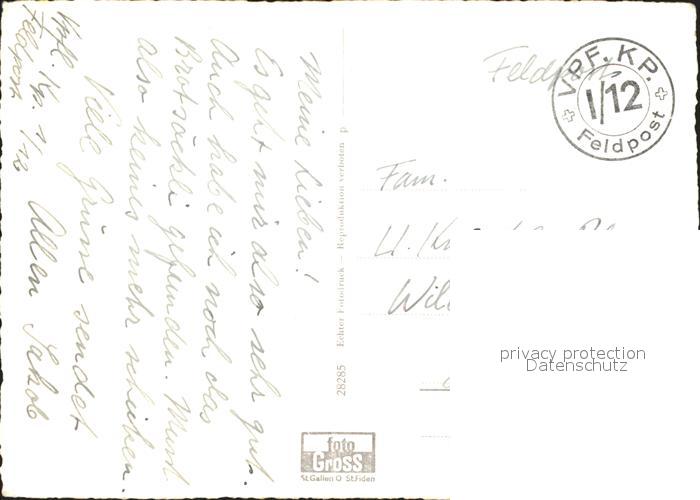 Meine Lieben!
Es geht mir also sehr gut.
Auch habe ich noch das
Brotsäckli gefunden. Musst
also keines mehr schicken.
Viele Grüsse sendet
Allen Jakob
Vpf. Kp. 1/12
Feldpost
28285 Echter Fotodruck — Reproduktion verboten d
foto
GROSS
St.Gallen O St.Fiden
Feldpost
V.P.F. K.P.
I/12
Feldpost
Fam.
privacy protection
Datenschutz